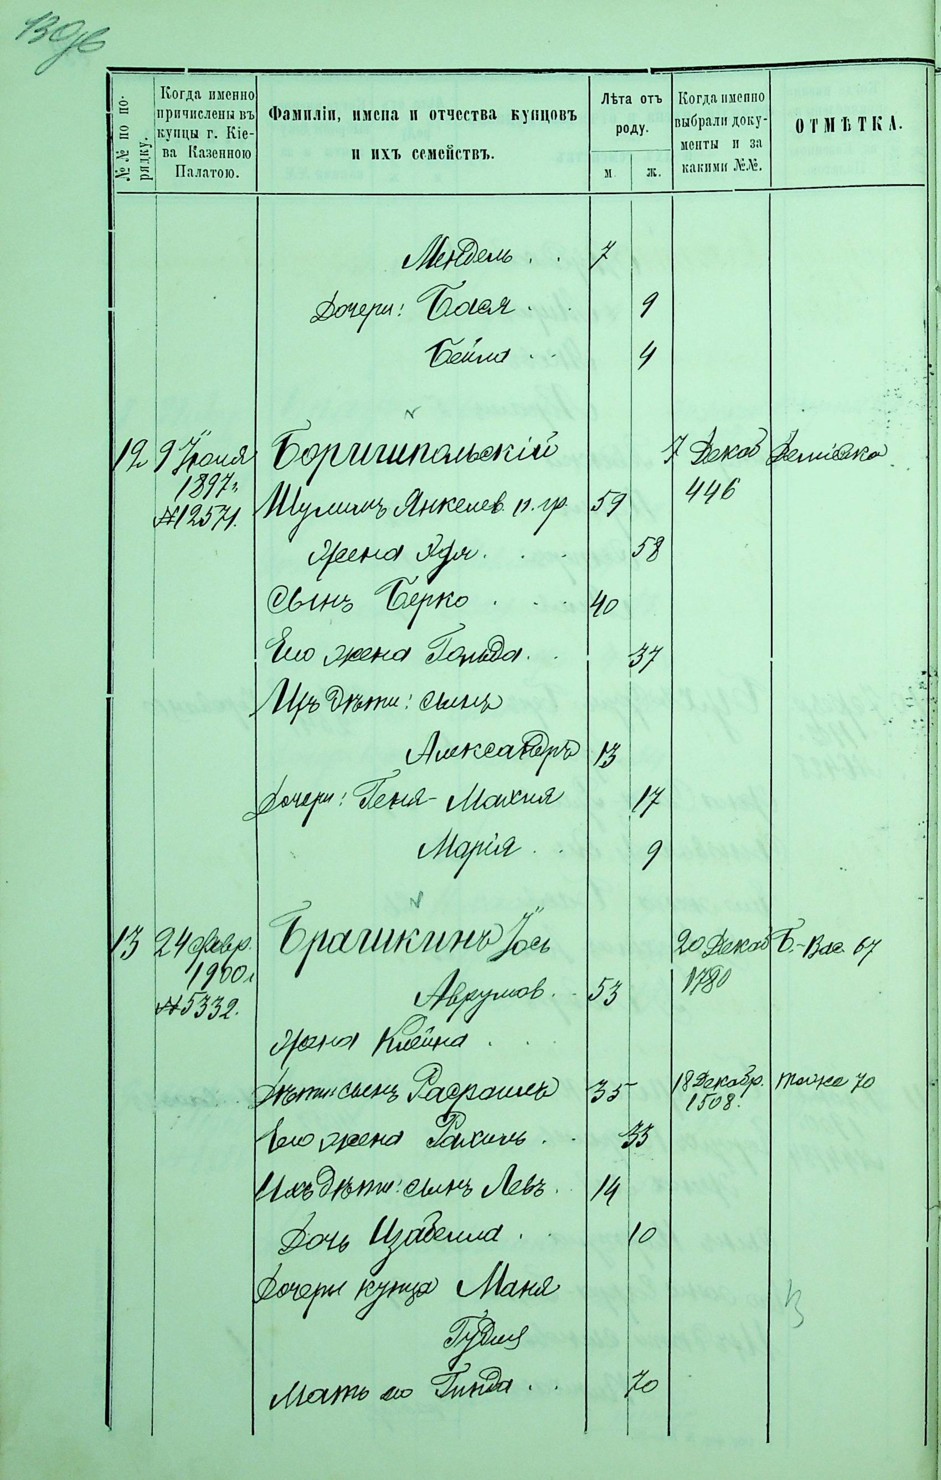 130об
№№ по порядку.
Когда именно причислены въ купцы г. Кіева Казенною Палатою.
Фамиліи, имена и отчества купцовъ и ихъ семействъ.
Лѣта отъ роду.
м. ж.
Когда именно выбрали документы и за какими №№.
ОТМѢТКА.
Мендель . . 7
Дочери: Бася . . 9
Бейла . . 4
12 9 Іюля Боришпольскій 7 Декаб Деміевка
1897 г. 446
№12571. Шулимъ Янкелев. п. гр. 59
Жена Хая . . 58
Сынъ Берко . . . 40
Его жена Гольда . . 37
Ихъ дѣти: сынъ
Александръ 13
Дочери: Геня-Махня 17
Марія . 9
13 24 февр. Брагшкинъ Іось 20 Декаб Б.-Вас. 67
1900 г. 1780
№5332. Аврумов. . 53
Жена Клейна . . .
Дѣти: сынъ Рафаилъ 35 18 Декабр. тоже 70
1508.
Его жена Рахиль . . 33
Ихъ дѣти: сынъ Левъ . 14
Дочь Изабелла . 10
Дочери купца Маня
Гудля
Мать его Гинда . . 70